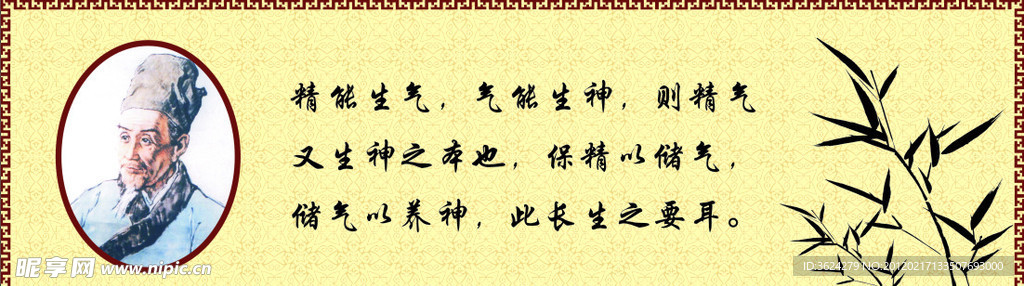 精能生气，气能生神，则精气
又生神之本也，保精以储气，
储气以养神，此长生之要耳。
昵享网 www.nipic.cn
ID:3624279 NO:20120217133507693000